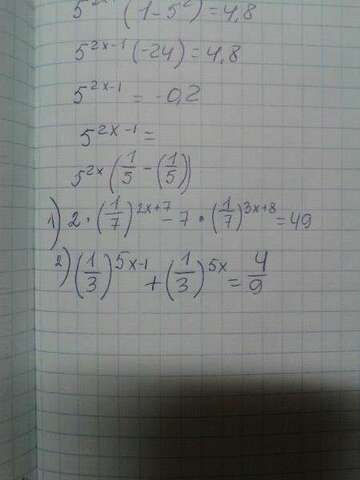 5^{2x-1} (1-5^2) = 4,8
5^{2x-1} (-24) = 4,8
5^{2x-1} = -0,2
5^{2x-1} =
5^{2x} (1/5 - (1/5))
1) 2 · (1/7)^{2x+7} - 7 · (1/7)^{3x+8} = 49
2) (1/3)^{5x-1} + (1/3)^{5x} = 4/9